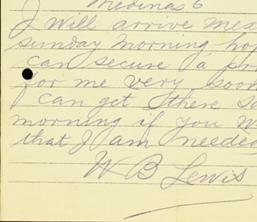 Medinas 6
I will arrive
sunday morning
can secure a
for me very soon
I can get there
morning if you
that I am needed
W B Lewis